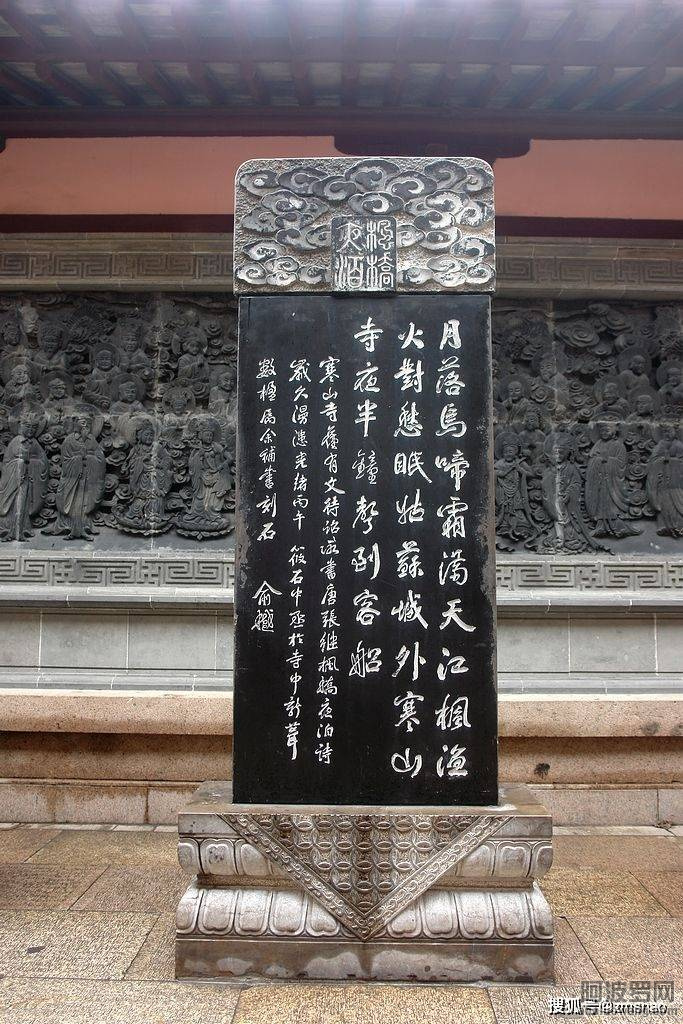 楓橋
夜泊
月落烏啼霜滿天江楓漁
火對愁眠姑蘇城外寒山
寺夜半鐘聲到客船
寒山寺舊有文待詔所書唐張継楓橋夜泊詩
歲久漫漶光緒丙午筱石中丞於寺中新葺
數楹属余補書刻石 俞樾
阿波罗网
搜狐号@zmshao